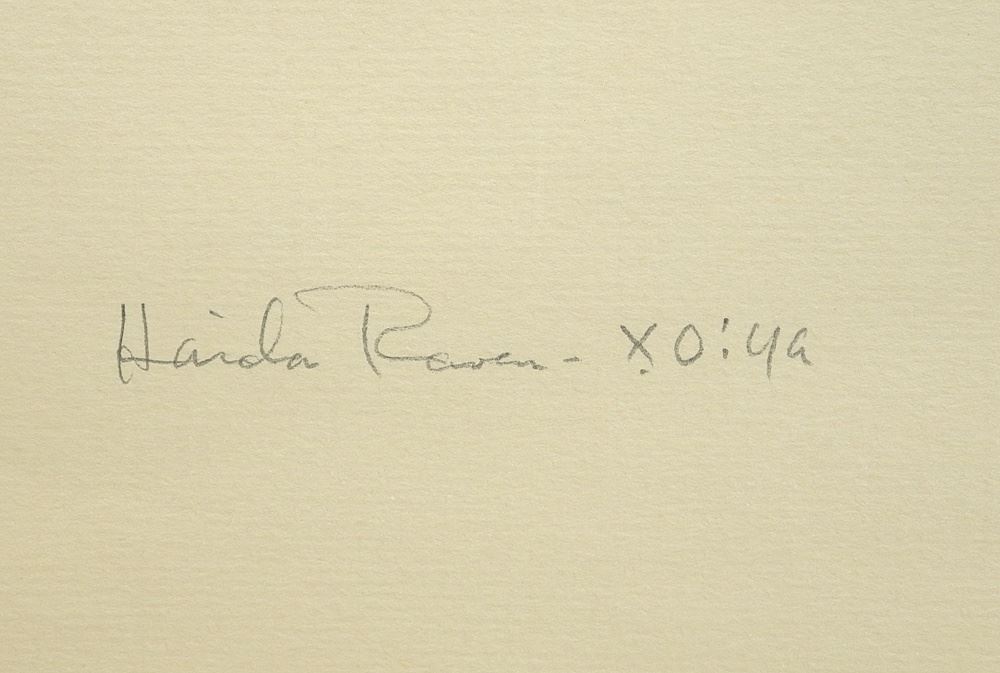 Haida Raven - x̣o:ya